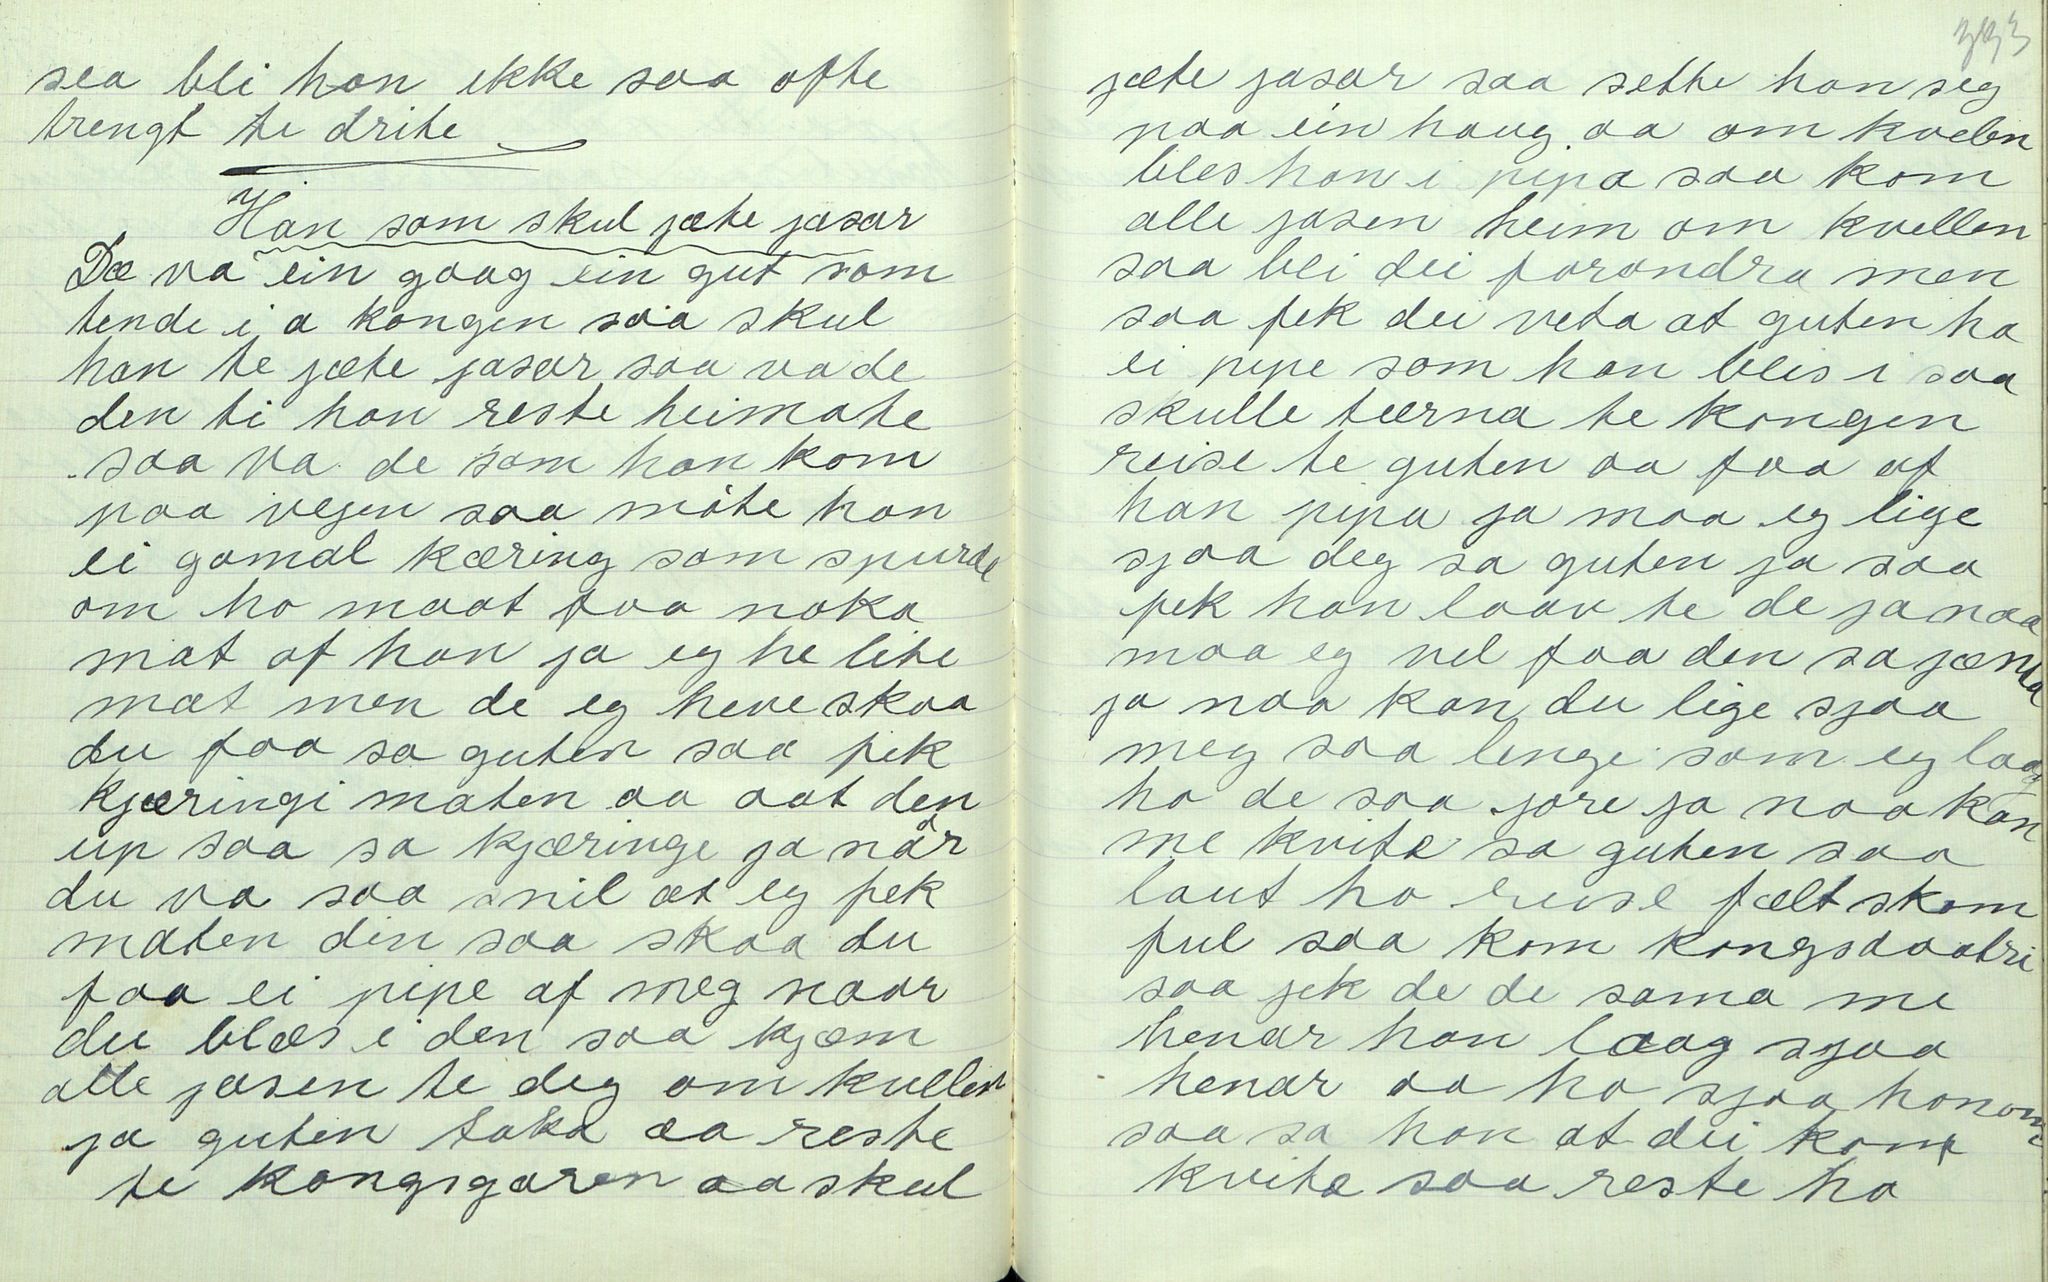 sea bli han ikke saa ofte
trengt te drite
Han som skul jæte jasar
Dæ va ein gaag ein gut som
tende i a kongen saa skul
han te jæte jasar saa va de
den ti han reste heimate
saa va de som han kom
paa vegen saa møte han
ei gamal kæring som spurde
om ho maat faa noka
mat af han ja eg he lite
mat men de eg heve skaa
du faa sa guten saa fek
kjæringi maten aa aat den
up saa sa kjæringe ja når
du va saa snil at eg fek
maten din saa skaa du
faa ei pipe af meg naar
du blæs i den saa kjæm
alle jasen te deg om kvellen
ja guten taka aa reste
te kongsgaren aa skul
jæte jasar saa sette han seg
paa ein haug aa om kvelen
bles han i pipa saa kom
alle jasen heim om kvellen
saa bli dei forandra men
saa fek dei veta at guten ha
ei pipe som han bles i saa
skulle tærna te kongen
reise te guten aa faa af
han pipa ja maa eg lige
sjaa deg sa guten ja saa
fek han laav te de ja naa
maa eg vel faa den sa jænta
ja naa kan du lige sjaa
meg saa lenge som eg laag
ho de saa jore ja naa kan
me kvite sa guten saa
laut ho reise fælt skam
ful saa kom kongsdaatri
saa jek de de sama me
henar han laag sjaa
henar aa ho sjaa honom
saa sa han at dei kom
kvite saa reste ho